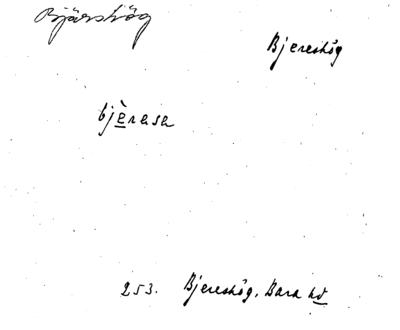 Bjärshög
Bjereshög
bjèrasa
253. Bjereshög, Bara hd